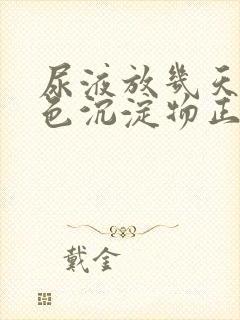 尿液放几天
色沉淀物正
戴金